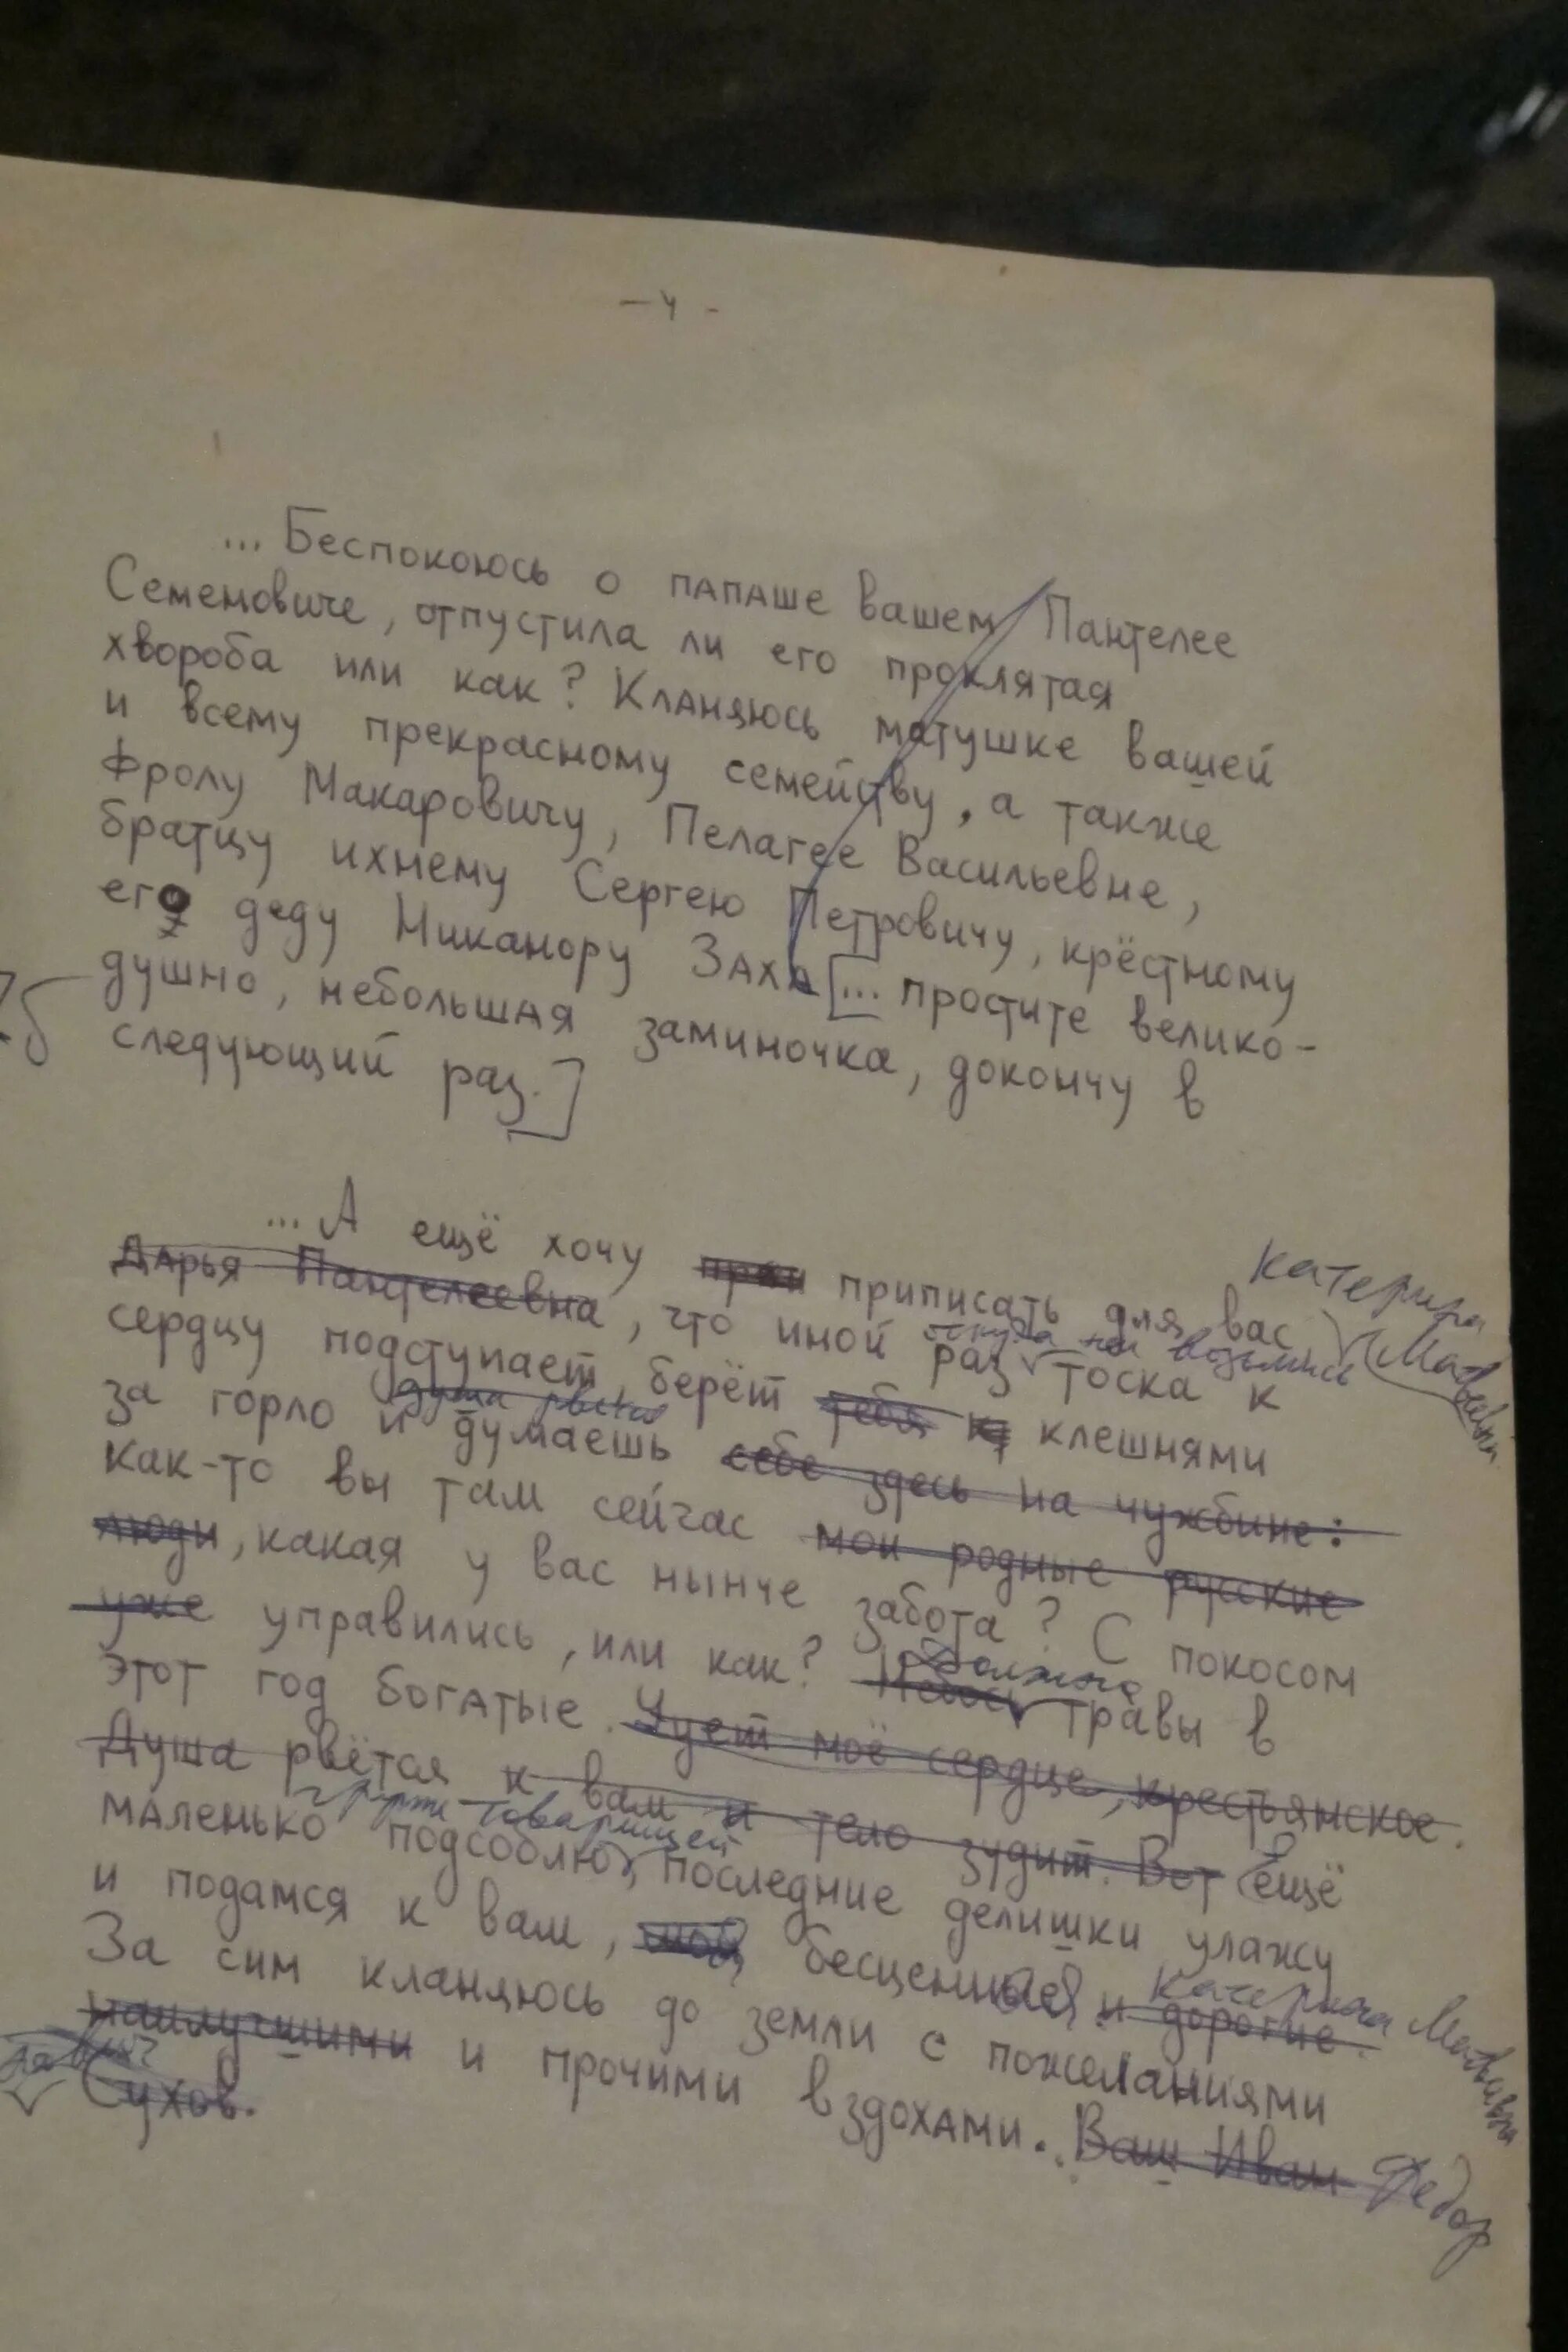 – 4 -
... Беспокоюсь о папаше вашем Пантелее
Семеновиче, отпустила ли его проклятая
хвороба или как? Кланяюсь матушке вашей
и всему прекрасному семейству, а также
Фролу Макаровичу, Пелагее Васильевне,
братцу ихнему Сергею Петровичу, крёстному
его деду Никанору Заха [... простите велико-
душно, небольшая заминочка, докончу в
следующий раз.]
... А ещё хочу приписать для вас Катерина
Дарья Пантелеевна, что иной раз тоска к Матвевна
откуда ни возьмись
сердцу подступает, берёт тебя клешнями
за горло и думаешь себе здесь на чужбине:
душа рвётся
как-то вы там сейчас мои родные русские
люди, какая у вас нынче забота? С покосом
уже управились, или как? Небось травы в
должно
этот год богатые. Чует моё сердце, крестьянское.
Душа рвётся к вам и тело зудит. Вот ещё
маленько подсоблю, последние делишки улажу
группе товарищей
и подамся к вам, бесценные и дорогие.
Катерина Матвевна
За сим кланяюсь до земли с пожеланиями
наилучшими и прочими вздохами. Ваш Иван Федор
Сухов.